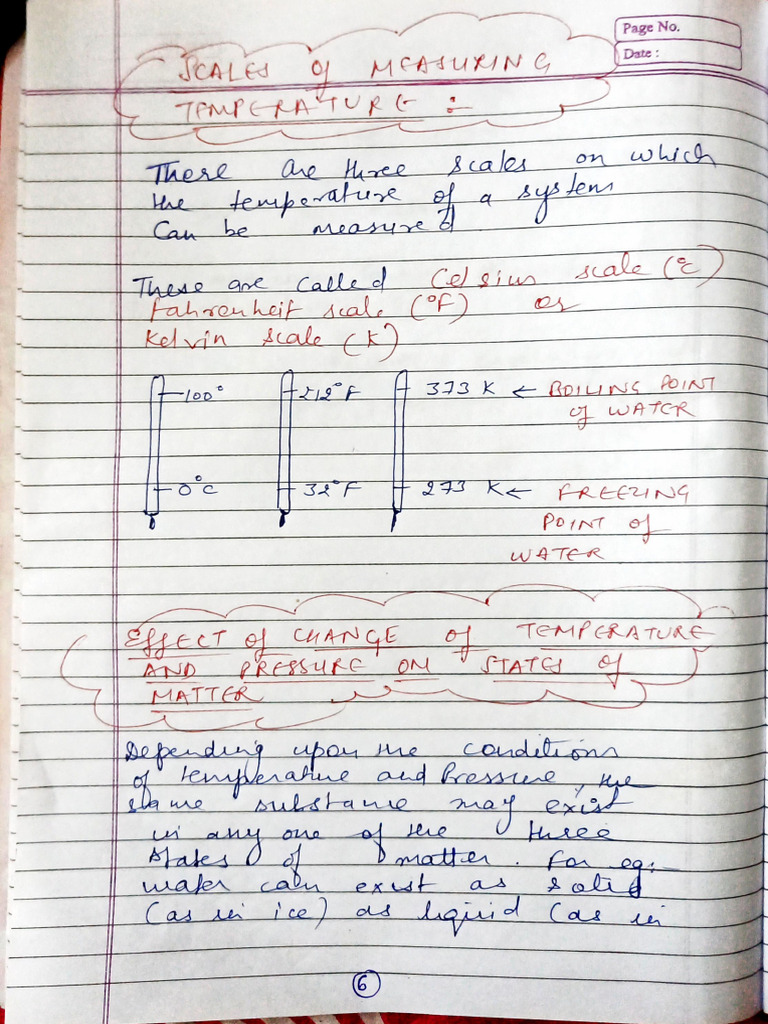 Page No.
Date :
SCALES of MEASURING
TEMPERATURE :-
There are three scales on which
the temperature of a system
Can be measured
These are called Celsius scale (°c)
Fahrenheit scale (°F) or
Kelvin scale (K)
100° 212°F 373 K ← BOILING POINT
of WATER
0°c 32°F 273 K ← FREEZING
POINT of
WATER
EFFECT of CHANGE of TEMPERATURE
AND PRESSURE ON STATES of
MATTER
Depending upon the conditions
of temperature and Pressure, the
same substance may exist
in any one of the three
states of matter. For eg:-
water can exist as solid
(as in ice) as liquid (as in
6